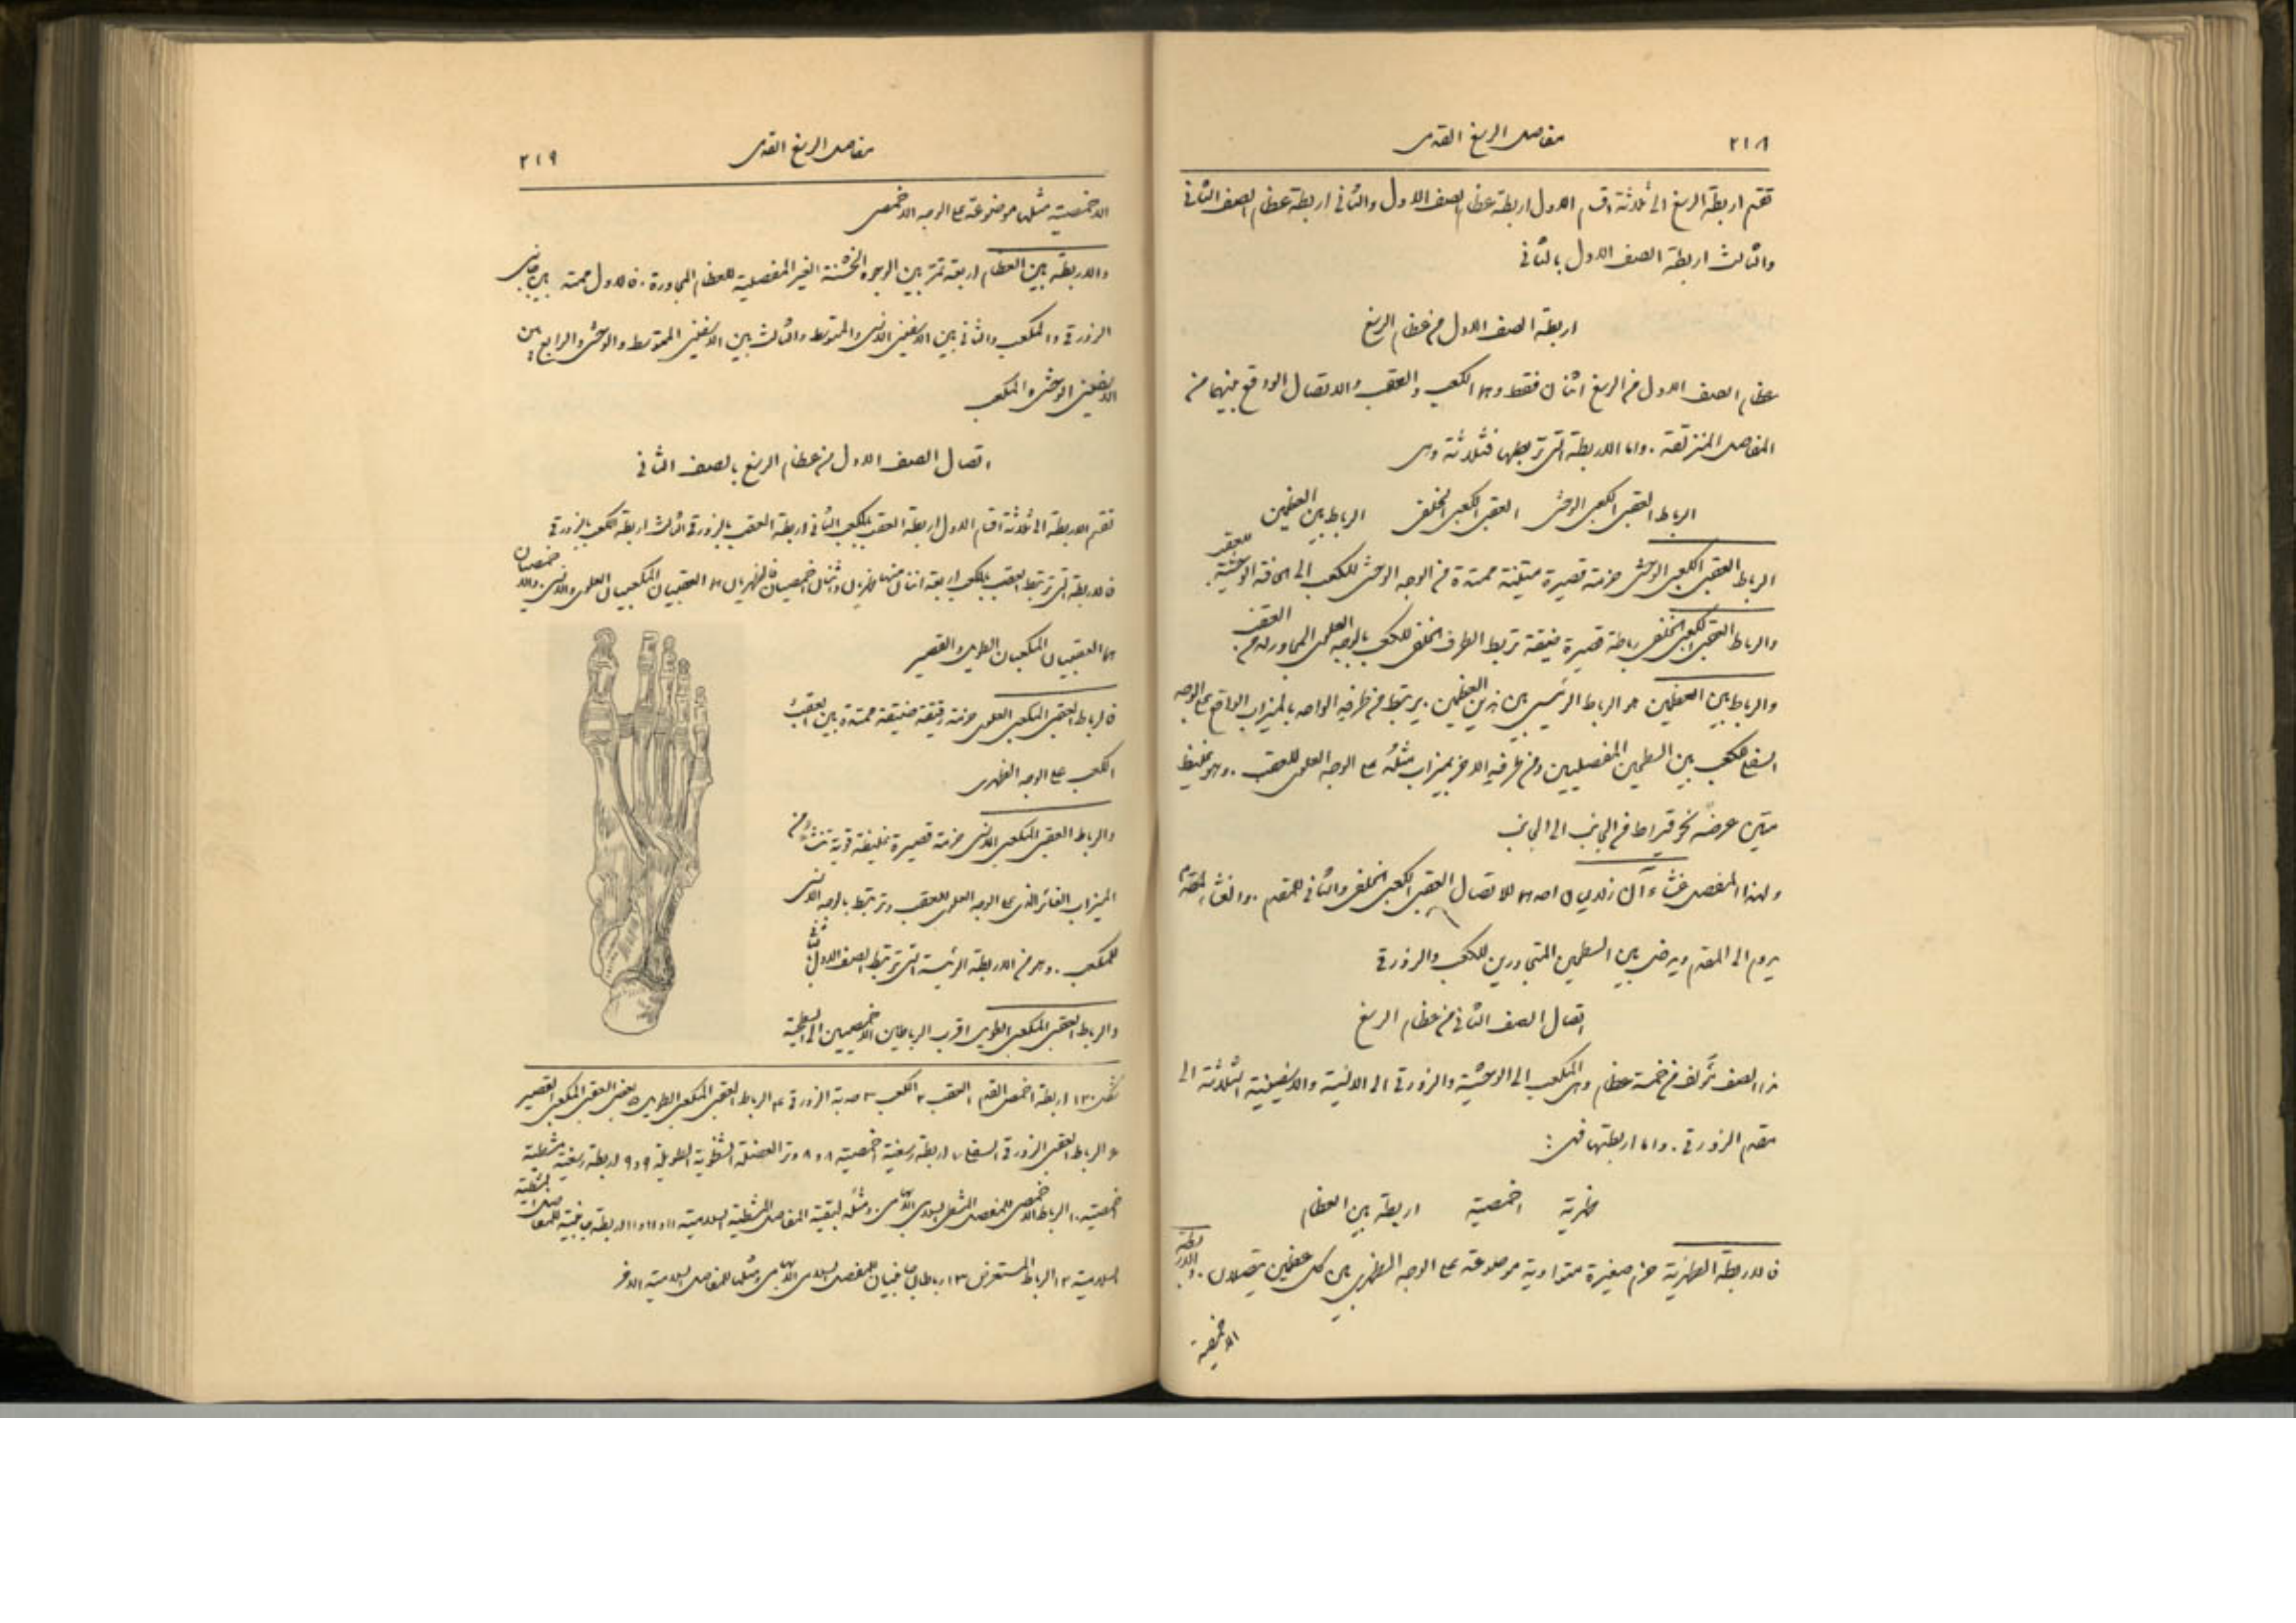 ٢١٨
مفاصل الرسغ القدمي
تقسم اربطة الرسغ الى ثلاثة اقسام الاول اربطة عظام الصف الاول والثاني اربطة عظام الصف الثاني
والثالث اربطة الصف الاول بالثاني
اربطة الصف الاول من عظام الرسغ
عظام الصف الاول من الرسغ اثنان فقط وهما الكعب والعقب والاتصال الواقع بينهما من
المفاصل المنزلقة . واما الاربطة التي تربطها فثلاثة وهي
الرباط العقبي الكعبي الوحشي العقبي الكعبي الخلفي الرباط بين العظمين
الرباط العقبي الكعبي الوحشي حزمة قصيرة متينة ممتدة من الوجه الوحشي للكعب الى الحافة الوحشية للعقب .
والرباط العقبي الكعبي الخلفي رباط قصيرة ضيقة تربط الطرف الخلفي للكعب بالوجه العلوي المجاور له من العقب .
والرباط بين العظمين هو الرباط الرئيسي بين هذين العظمين . يرتبط من طرفيه الواحد بالميزاب الواقع على الوجه
السفلي للكعب بين السطحين المفصليين ومن طرفيه الاخر بميزاب مثله على الوجه العلوي للعقب . وهو غليظ
متين عرضه نحو قيراط من الجانب الى الجانب
ولهذا المفصل غشاءآن زلاليان احدهما للاتصال العقبي الكعبي الخلفي والثاني للمقدم . والغشاء المقدم
يدوم الى المقدم ويدخل بين السطحين المتجاورين للكعب والزورقي
اتصال الصف الثاني من عظام الرسغ
هذا الصف يتألف من خمسة عظام وهي المكعب الى الوحشية والزورقي الى الانسية والاسفينية الثلاثة الى
مقدم الزورقي . واما اربطتها فهي :
ظهرية اخمصية اربطة بين العظام
فالاربطة الظهرية حزم صغيرة متوازية موضوعة على الوجه الظهري بين كل عظمين يتصلان . والاربطة
الاخمصية
مفاصل الرسغ القدمي
٢١٩
الاخمصية مثلها موضوعة على الوجه الاخمصي
والاربطة بين العظام اربعة تمر بين الوجوه الخشنة الغير المفصلية للعظام المجاورة . فالاول ممتد بين جانبي
الزورقي والمكعب والثاني بين الاسفيني الانسي والمتوسط والثالث بين الاسفيني المتوسط والوحشي والرابع بين
الاسفيني الوحشي والمكعب
اتصال الصف الاول من عظام الرسغ بالصف الثاني
تقسم الاربطة الى ثلاثة اقسام الاول اربطة العقب بالمكعب الثاني اربطة العقب بالزورقي الثالث اربطة الكعب بالزورقي
فالاربطة التي تربط العقب بالمكعب اربعة اثنان منها ظهريان واثنان اخمصيان فالظهريان هما العقبيان المكعبيان العلوي والانسي . والاخمصيان
هما العقبيان المكعبيان الطويل والقصير
فالرباط العقبي المكعبي العلوي حزمة رقيقة ضيقة ممتدة بين العقب و
المكعب على الوجه الظهري
والرباط العقبي المكعبي الانسي حزمة قصيرة غليظة قوية تنشأ من
الميزاب الغائر الذي على الوجه العلوي للعقب وترتبط بالوجه الانسي
للمكعب . وهو من الاربطة الرئيسة التي تربط الصف الاول بالثاني
والرباط العقبي المكعبي الطويل اقرب الرباطين الاخمصيين الى السطحية
شكل ١٣٠ اربطة اخمص القدم ١ العقب ٢ الكعب ٣ حدبة الزورقي ٤ الرباط العقبي المكعبي الطويل ٥ بعض العقبي المكعبي القصير
٦ الرباط العقبي الزورقي السفلي ٧ اربطة رسغية اخمصية ٨ و٨ وتر العضلة الشظوية الطويلة ٩ و٩ اربطة رسغية مشطية
اخمصية ١٠ الرباط الاخمصي للمفصل المشطي السلامي الابهامي . ومثله لبقية المفاصل المشطية السلامية ١١ و١١ و١١ اربطة جانبية للمفاصل المشطية
السلامية ١٢ الرباط المستعرض ١٣ رباطان جانبيان للمفصل السلامي الابهامي ومثلها للمفاصل السلامية الاخر